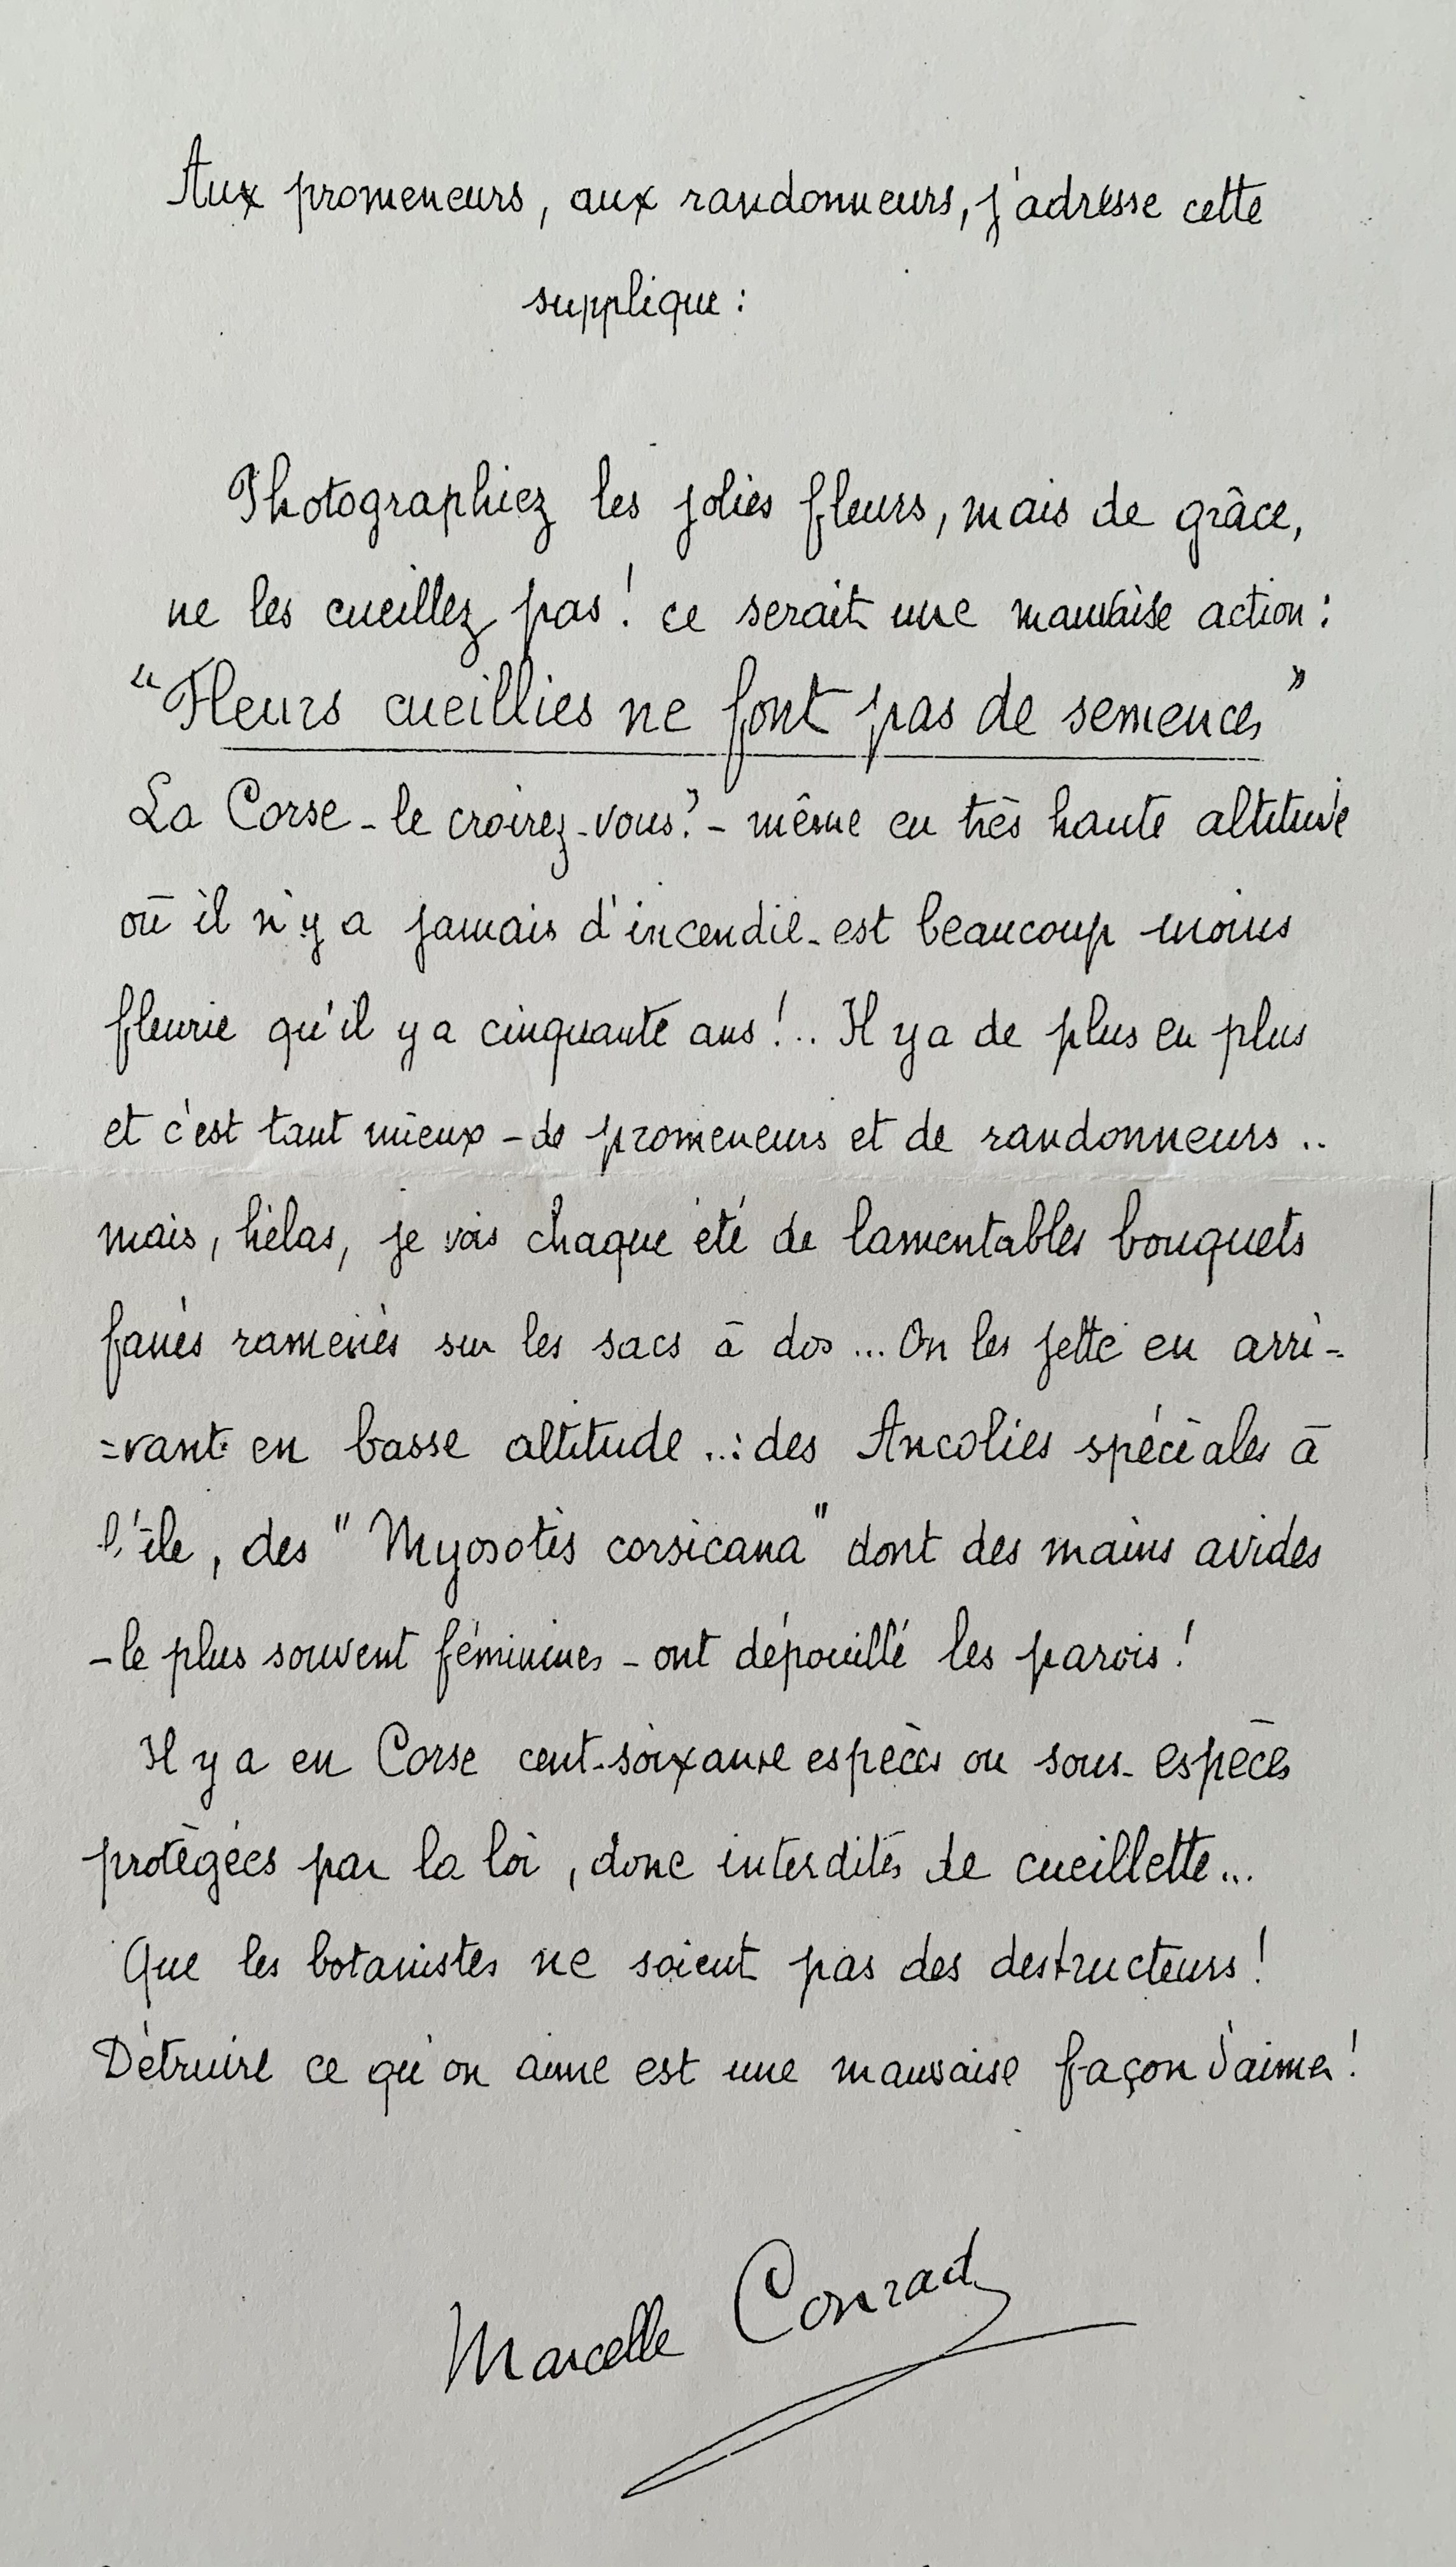 Aux promeneurs, aux randonneurs, j'adresse cette
supplique :
Photographiez les jolies fleurs, mais de grâce,
ne les cueillez pas ! ce serait une mauvaise action :
"Fleurs cueillies ne font pas de semences"
La Corse - le croirez-vous? - même en très haute altitude
où il n'y a jamais d'incendie - est beaucoup moins
fleurie qu'il y a cinquante ans !.. Il y a de plus en plus
et c'est tant mieux - de promeneurs et de randonneurs ..
mais, hélas, je vois chaque été de lamentables bouquets
fanés ramenés sur les sacs à dos ... On les jette en arri-
=vant en basse altitude ..: des Ancolies spéciales à
l'île, des "Myosotis corsicana" dont des mains avides
- le plus souvent féminines - ont dépouillé les parois !
Il y a en Corse cent-soixante espèces ou sous-espèces
protégées par la loi, donc interdites de cueillette...
Que les botanistes ne soient pas des destructeurs !
Détruire ce qu'on aime est une mauvaise façon d'aimer !
Marcelle Conrad